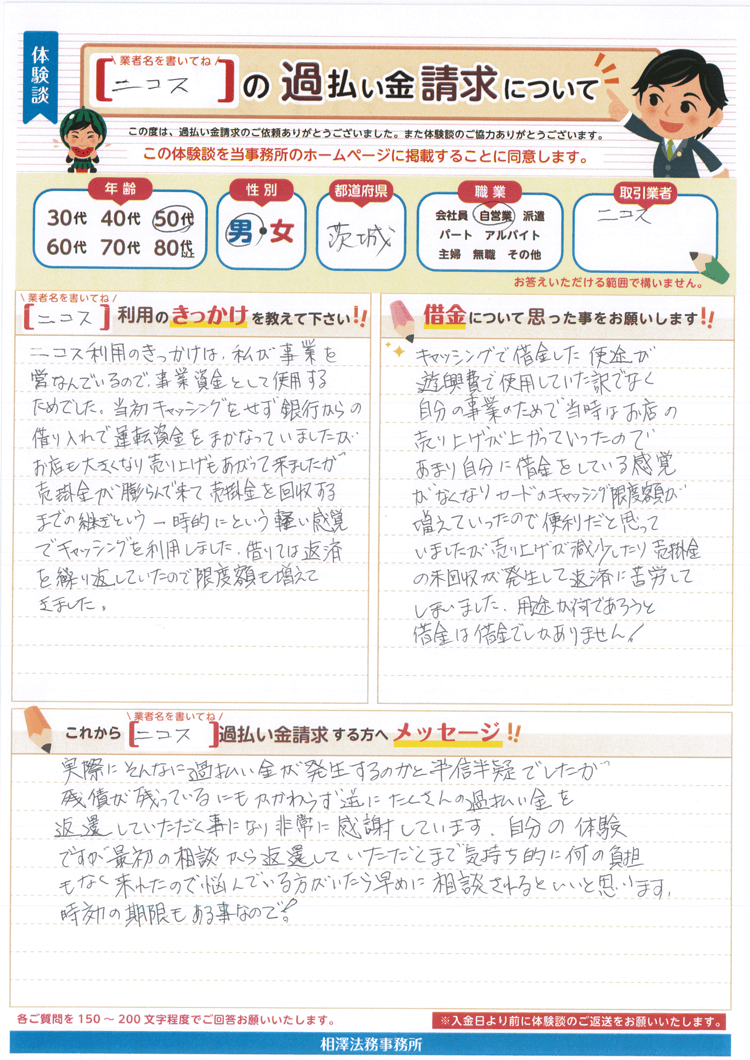 体験談
業者名を書いてね
[ニコス]の過払い金請求について
この度は、過払い金請求のご依頼ありがとうございました。また体験談のご協力ありがとうございます。
この体験談を当事務所のホームページに掲載することに同意します。
年齢
30代 40代 50代
60代 70代 80代以上
性別
男・女
都道府県
茨城
職業
会社員 自営業 派遣
パート アルバイト
主婦 無職 その他
取引業者
ニコス
お答えいただける範囲で構いません。
業者名を書いてね
[ニコス]利用のきっかけを教えて下さい!!
ニコス利用のきっかけは、私が事業を
営なんでいるので、事業資金として使用する
ためでした。当初キャッシングをせず銀行からの
借り入れで運転資金をまかなっていましたが
お店も大きくなり売り上げもあがって来ましたが
売掛金が膨らんで来て売掛金を回収する
までの継ぎという一時的にという軽い感覚
でキャッシングを利用しました。借りては返済
を繰り返していたので限度額も増えて
きました。
借金について思った事をお願いします!!
キャッシングで借金した使途が
遊興費で使用していた訳でなく
自分の事業のためで当時はお店の
売り上げが上がっていったので
あまり自分に借金をしている感覚
がなくなりカードのキャッシング限度額が
増えていったので便利だと思って
いましたが売り上げが減少したり売掛金
の未回収が発生して返済に苦労して
しまいました。用途が何であろうと
借金は借金でしかありません!
業者名を書いてね
これから[ニコス]過払い金請求する方へメッセージ!!
実際にそんなに過払い金が発生するのかと半信半疑でしたが
残債が残っているにもかかわらず逆にたくさんの過払い金を
返還していただく事になり非常に感謝しています。自分の体験
ですが最初の相談から返還していただくまで気持ち的に何の負担
もなく来れたので悩んでいる方がいたら早めに相談されるといいと思います。
時効の期限もある事なので!
各ご質問を150～200文字程度でご回答お願いいたします。
※入金日より前に体験談のご返送をお願いいたします。
相澤法務事務所